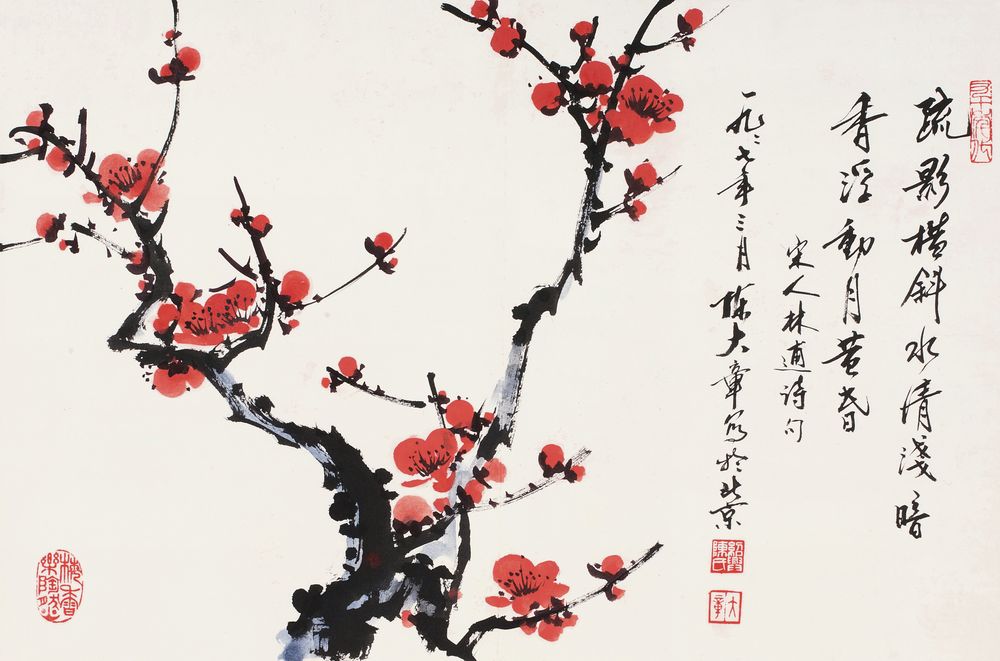 疏影横斜水清淺暗
香浮動月黄昏
宋人林逋诗句
一九八七年三月陳大章写於北京
大章